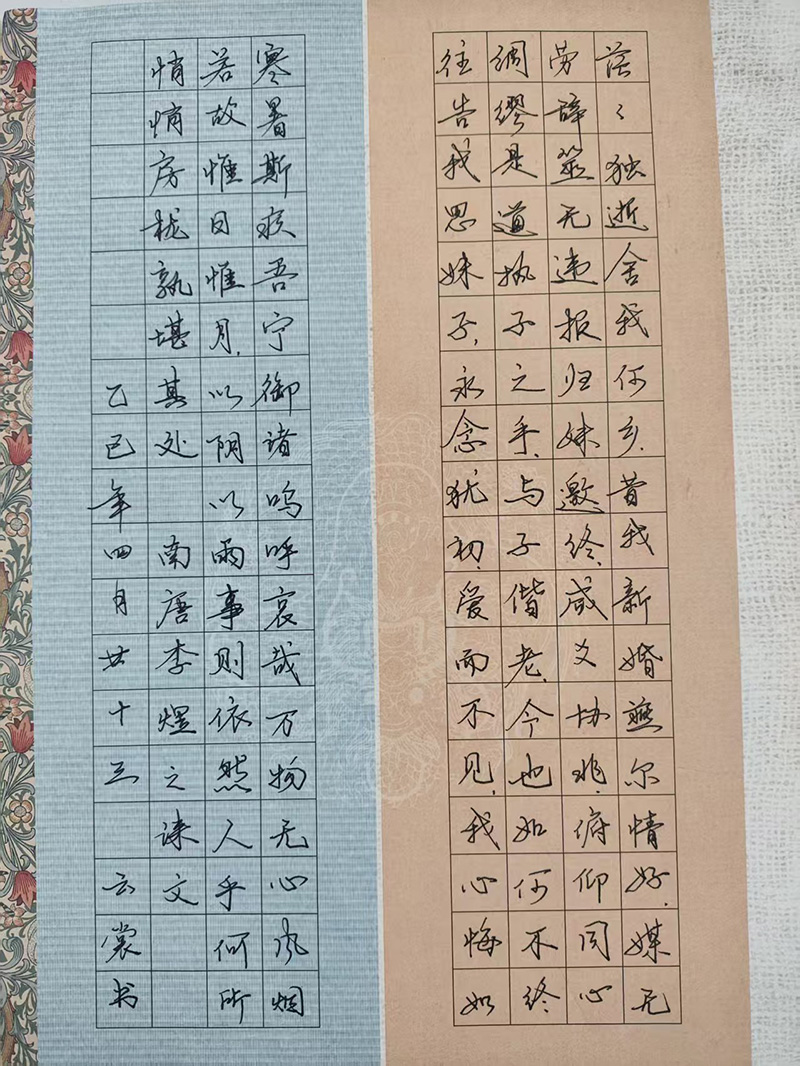 茫〻独逝舍我何乡昔我新婚燕尔情好媒无
劳辞筮无违报归妹邀终咸爻协兆俯仰同心
绸缪是道执子之手与子偕老今也如何不终
往告我思妹子永念犹初爱而不见我心悔如
寒暑斯疚吾宁御诸呜呼哀哉万物无心风烟
若故惟日惟月以阴以雨事则依然人乎何所
悄悄房栊孰堪其处 南唐李煜之诔文
乙巳年四月廿十三 云裳书